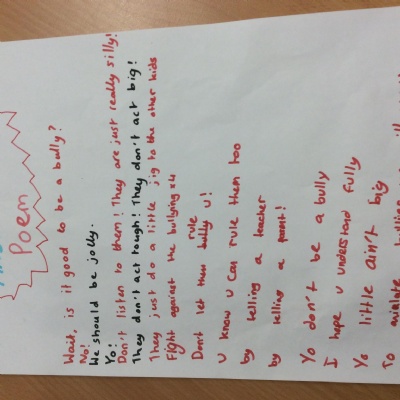 Poem
Wait, is it good to be a bully?
No!
We should be jolly.
Yo!
Don't listen to them! They are just really silly!
They don't act tough! They don't act big!
They just do a little jig to the other kids
Fight against the bullying x4
rule
Don't let them bully u!
u know u can rule them too
by telling a teacher
by telling a parent!
Yo don't be a bully
I hope u understand fully
Yo little ain't big
To